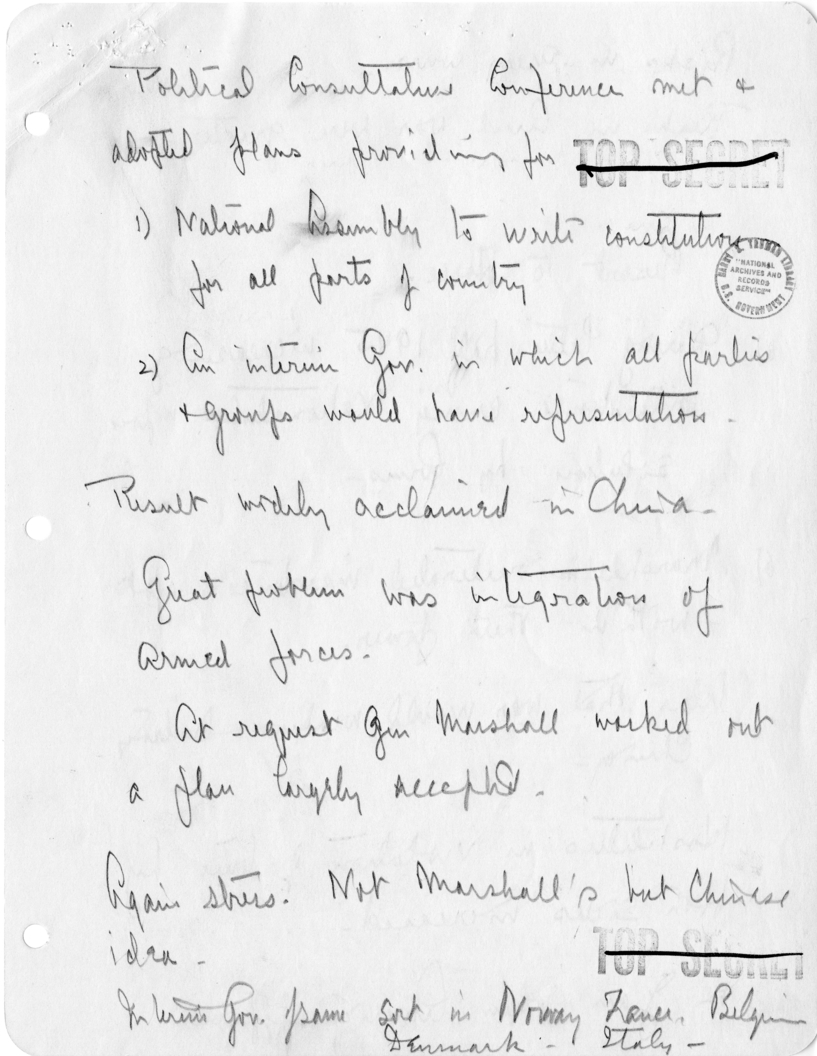 Political Consultative Conference met &
adopted plans providing for TOP SECRET
1) National Assembly to write constitution
for all parts of country
HARRY S. TRUMAN LIBRARY
"NATIONAL
ARCHIVES AND
RECORDS
SERVICE"
U.S. GOVERNMENT
2) An interim Gov. in which all parties
& groups would have representation.
Result widely acclaimed in China -
Great problem was integration of
armed forces.
At request Gen Marshall worked out
a plan largely accepted -
Again stress. Not Marshall's but Chinese
idea -
TOP SECRET
Interim Gov. same sort in Norway France, Belgium
Denmark - Italy -